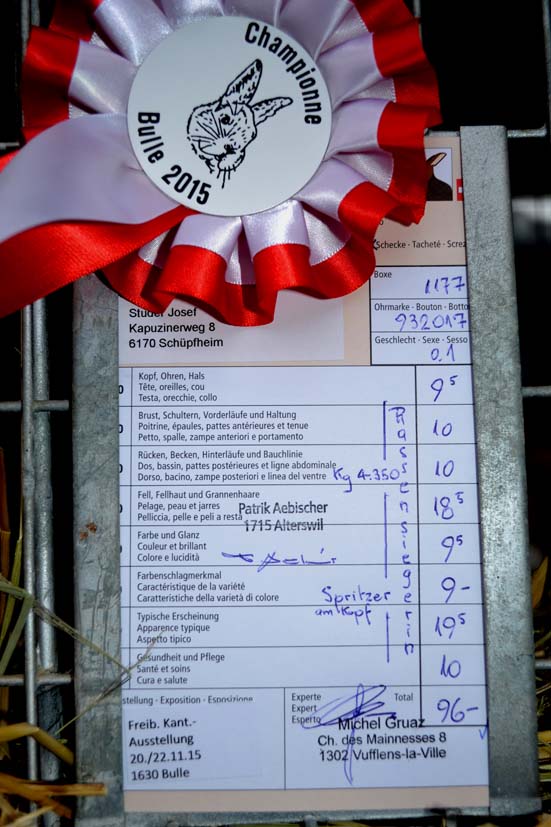 Championne
Bulle 2015
Schecke · Tacheté · Screz
Boxe
1177
Ohrmarke · Bouton · Botto
932017
Geschlecht · Sexe · Sesso
0.1
Studer Josef
Kapuzinerweg 8
6170 Schüpfheim
Kopf, Ohren, Hals
Tête, oreilles, cou
Testa, orecchie, collo
9⁵
Brust, Schultern, Vorderläufe und Haltung
Poitrine, épaules, pattes antérieures et tenue
Petto, spalle, zampe anteriori e portamento
10
Rücken, Becken, Hinterläufe und Bauchlinie
Dos, bassin, pattes postérieures et ligne abdominale
Dorso, bacino, zampe posteriori e linea del ventre
Kg 4.350
10
Fell, Fellhaut und Grannenhaare
Pelage, peau et jarres
Pelliccia, pelle e peli a resta
Patrik Aebischer
1715 Alterswil
18⁵
Farbe und Glanz
Couleur et brillant
Colore e lucidità
9⁵
Farbenschlagmerkmal
Caractéristique de la variété
Caratteristiche della varietà di colore
Spritzer
am Kopf
9-
Typische Erscheinung
Apparence typique
Aspetto tipico
19⁵
Gesundheit und Pflege
Santé et soins
Cura e salute
10
Rassensiegerin
stellung · Exposition · Esposizione
Freib. Kant.-
Ausstellung
20./22.11.15
1630 Bulle
Experte
Expert
Esperto
Total
96-
Michel Gruaz
Ch. des Mainnesses 8
1302 Vufflens-la-Ville